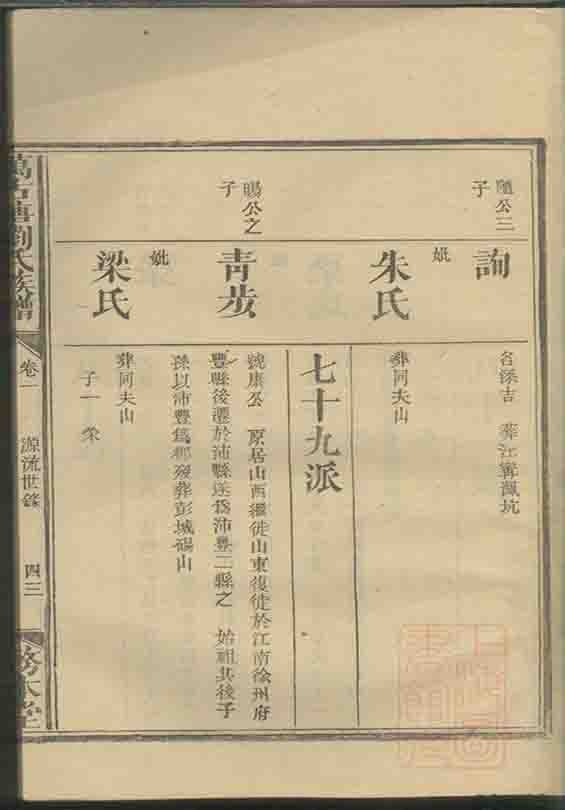 公三
子
詢
葬江寧瓢坑
妣
朱氏
葬同夫山
七十九派
暘公之
子
青步
號康公　原居山西繼徙山東復徙於江南徐州府
豐縣後遷於沛縣遂爲沛豐二縣之　始祖其後子
孫以沛豐爲鄉殁葬彭城碭山
妣
梁氏
葬同夫山
子一榮
劉氏族譜
卷一
源流世錄
四三
務本堂